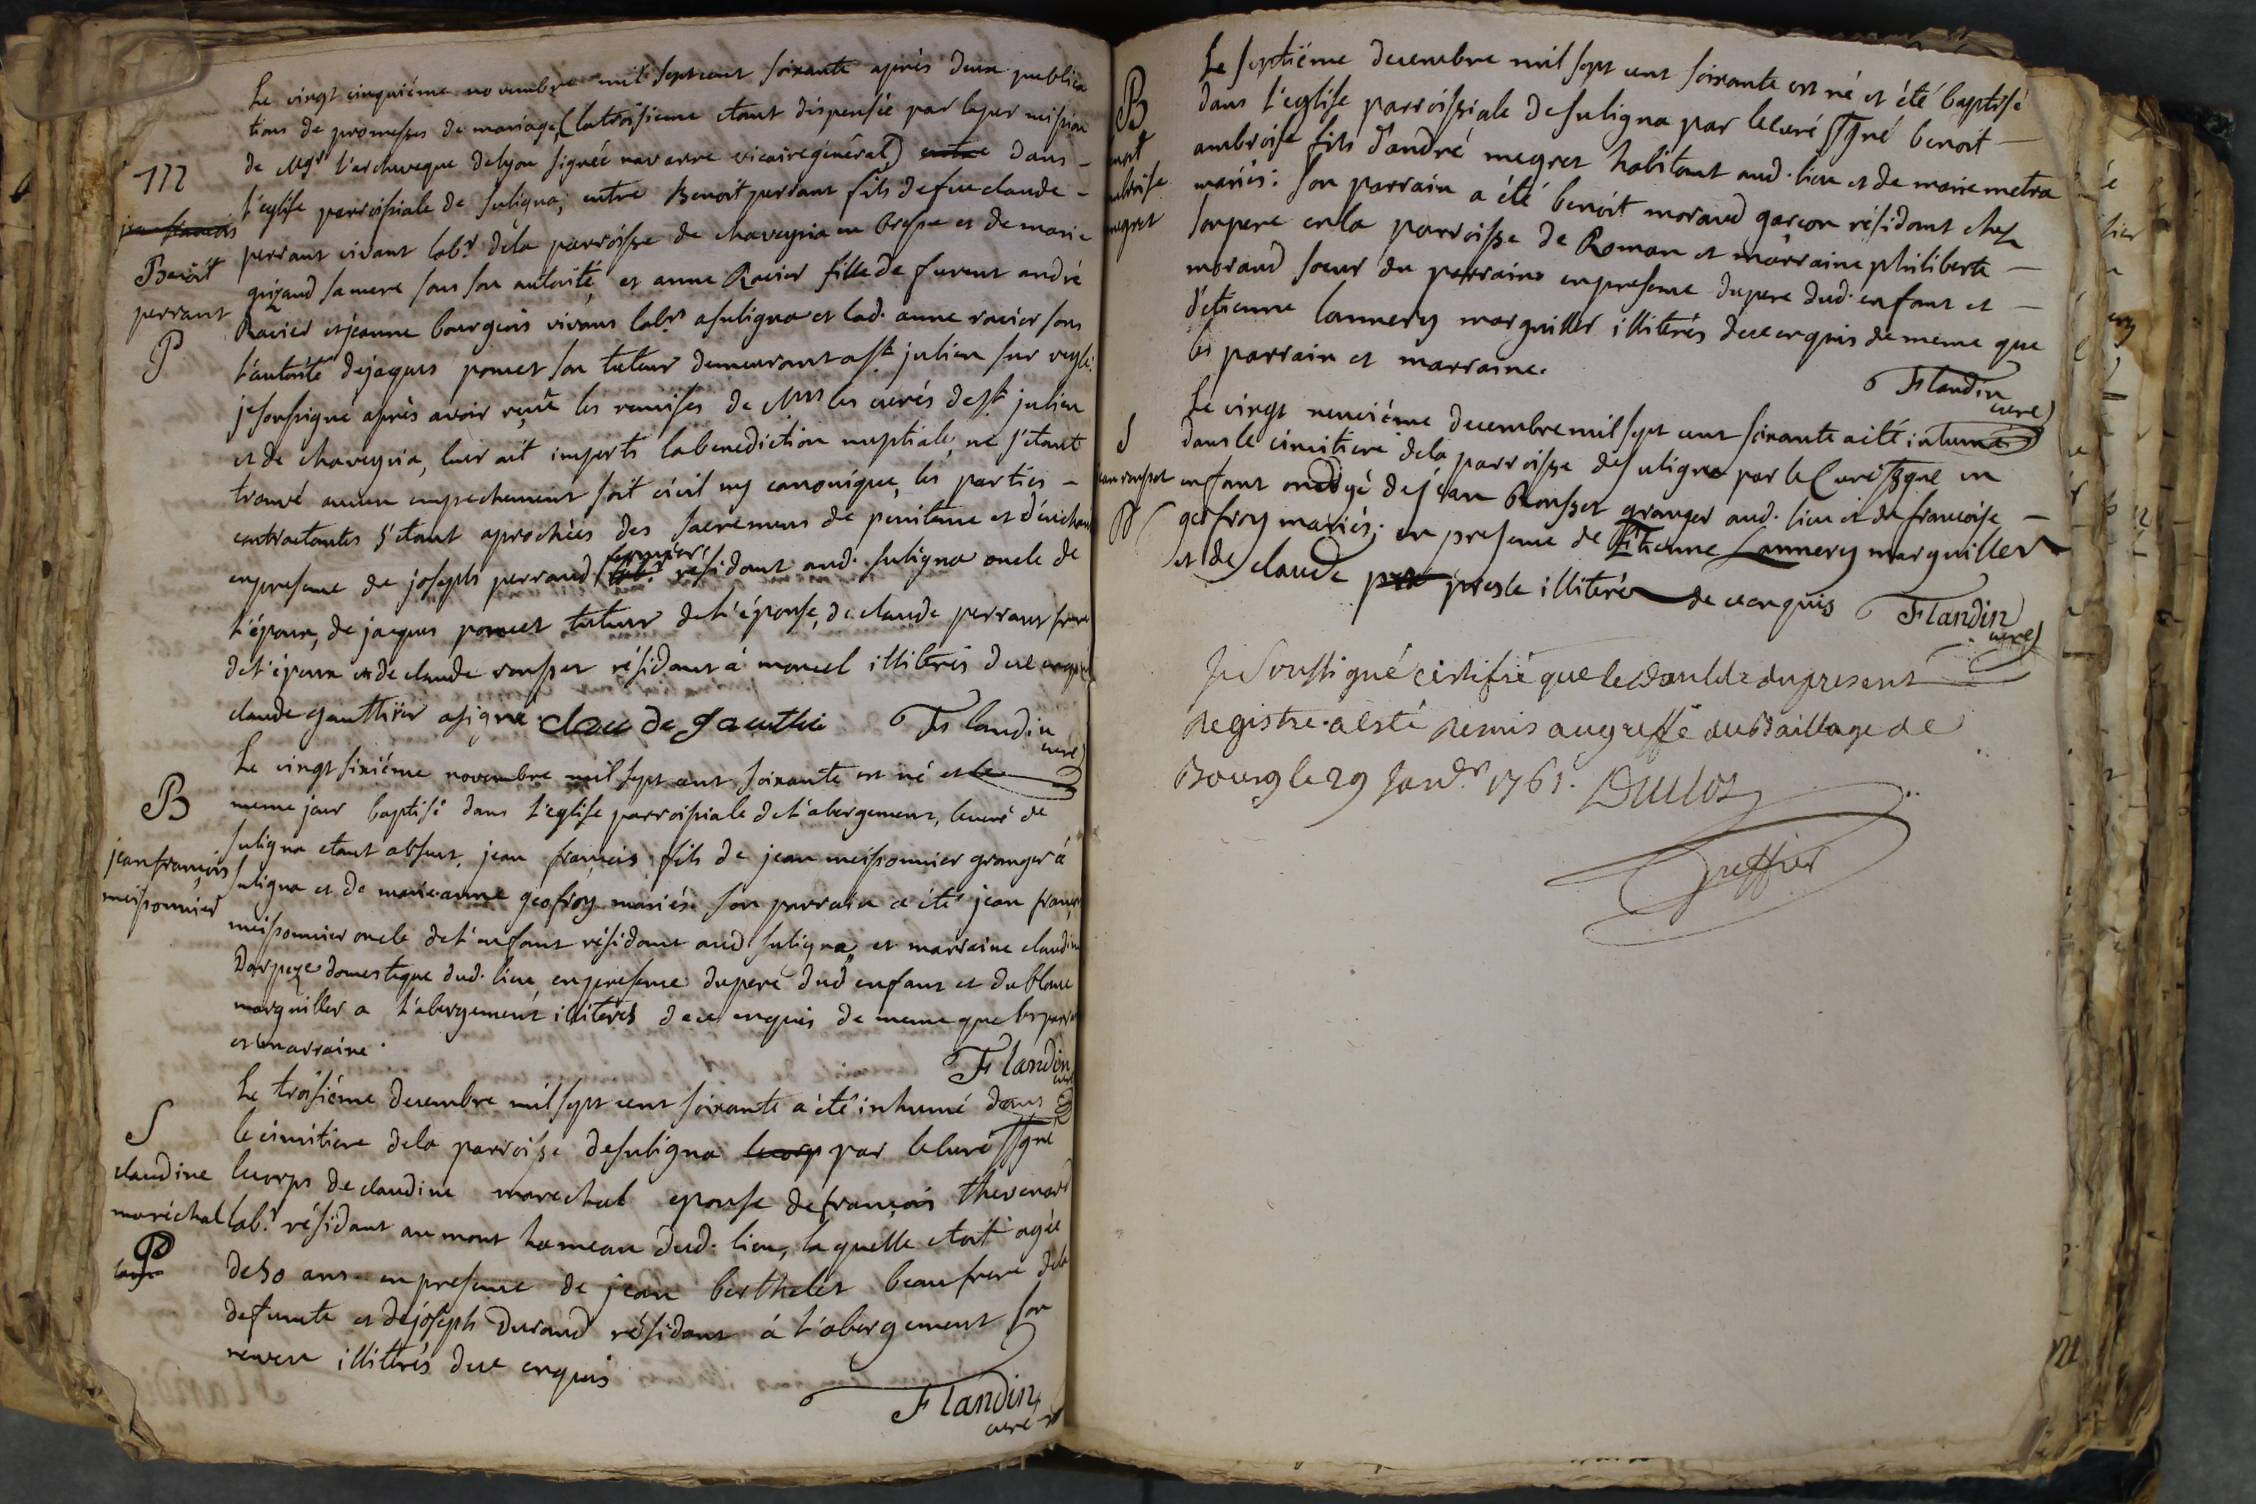 Le vingt cinquiéme novembre mil sept cent soixante après deux publica
tions de promesses de mariage, (la troisieme etant dispensée par la per mission
de Mgr l'archeveque de lyon signée navarre vicaire général) entre dans -
l'eglise parroissiale de suligna, entre Benoit perrant fils de feu claude -
perrant vivant labr dela parroisse de chaveyria en Bresse et de marie
sa mere sous son autorité, et anne Ravier fille de furent andré
Ravier et jeanne bourgeois vivans labrs a suligna et lad. anne ravier sous
l'autorité de jaques poncet son tuteur demeurant a st julien sur
je soussigné après avoir reçu les remises de Mrs les curés de st julien
et de chaveyria, leur ait imparti la benediction nuptiale, ne s'etant
trouvé aucun empechement soit civil ny canonique, les parties -
contractantes s'étant aprochées des sacremens de penitence et
en presence de joseph perraud labr résidant aud. suligna oncle de
l'époux, de jacques poncet tuteur de l'épouse, de claude perrant frere
de l'époux et de claude rousset résidant à marcel illiterés de ce enquis
claude gauthier a signé. claude gauthie Flandin
curé
Le vingt sixiéme novembre mil sept cent soixante est né et le
meme jour baptisé dans l'eglise parroissiale de l'abergement, le curé de
suligna etant absent, jean françois fils de jean meissonnier granger à
suligna et de marie-anne geofroy mariés. son parrain a été jean franç
meissonnier oncle de l'enfant résidant aud. suligna, et marraine claudine
domestique dud. lieu, en presence du pere dud enfant et du blanc
marguiller a l'abergement illiterés de ce enquis de meme que les parrain
et marraine.
Flandin
curé
Le troisiéme decembre mil sept cent soixante a été inhumé dans
le cimitiere dela parroisse de suligna le corp par le curé ssgné
le corps de claudine marechal epouse de françois thevenard
labr résidant au mont hameau dud. lieu, laquelle etoit agée
de 50 ans. en presence de jean berthelet beaufrere dela
defunte et de joseph Durand résidant à l'abergement son
neveu illiterés de ce enquis
Flandin
curé
172
jean françois
Benoît
perrant
P
B
jean françois
meissonnier
S
claudine
maréchal
P
Le septiéme decembre mil sept cent soixante est né et été baptisé
dans l'eglise parroissiale de suligna par le curé ssgné benoit -
ambroise fils d'andré megret habitant aud. lieu et de marie metra
mariés: son parrain a été benoit moraud garçon résidant chez
son pere en la parroisse de Roman et marraine philiberte -
moraud soeur du parrain en presence du pere dud. enfant et -
d'etienne lannery marguiller illiterés de ce enquis de meme que
les parrain et marraine.
Flandin
curé
Le vingt neuviéme decembre mil sept cent soixante a été inhumé
dans le cimitiere dela parroisse de suligna par le Curé ssgné un
enfant ondoyé de jean Rousset granger aud. lieu et de francoise -
geofroy mariés; en presence de Etienne Lannery marguiller
et de claude illiterés de ce enquis Flandin
curé
Je soussigné certifie que le double du present
Registre a esté remis au greffe du Bailliage de
Bourg le 29 Janvr 1761. Duclos
Greffier
B
S
jean rousset